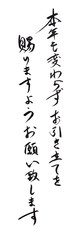 本年も変わらずお引き立てを
賜りますようお願い致します